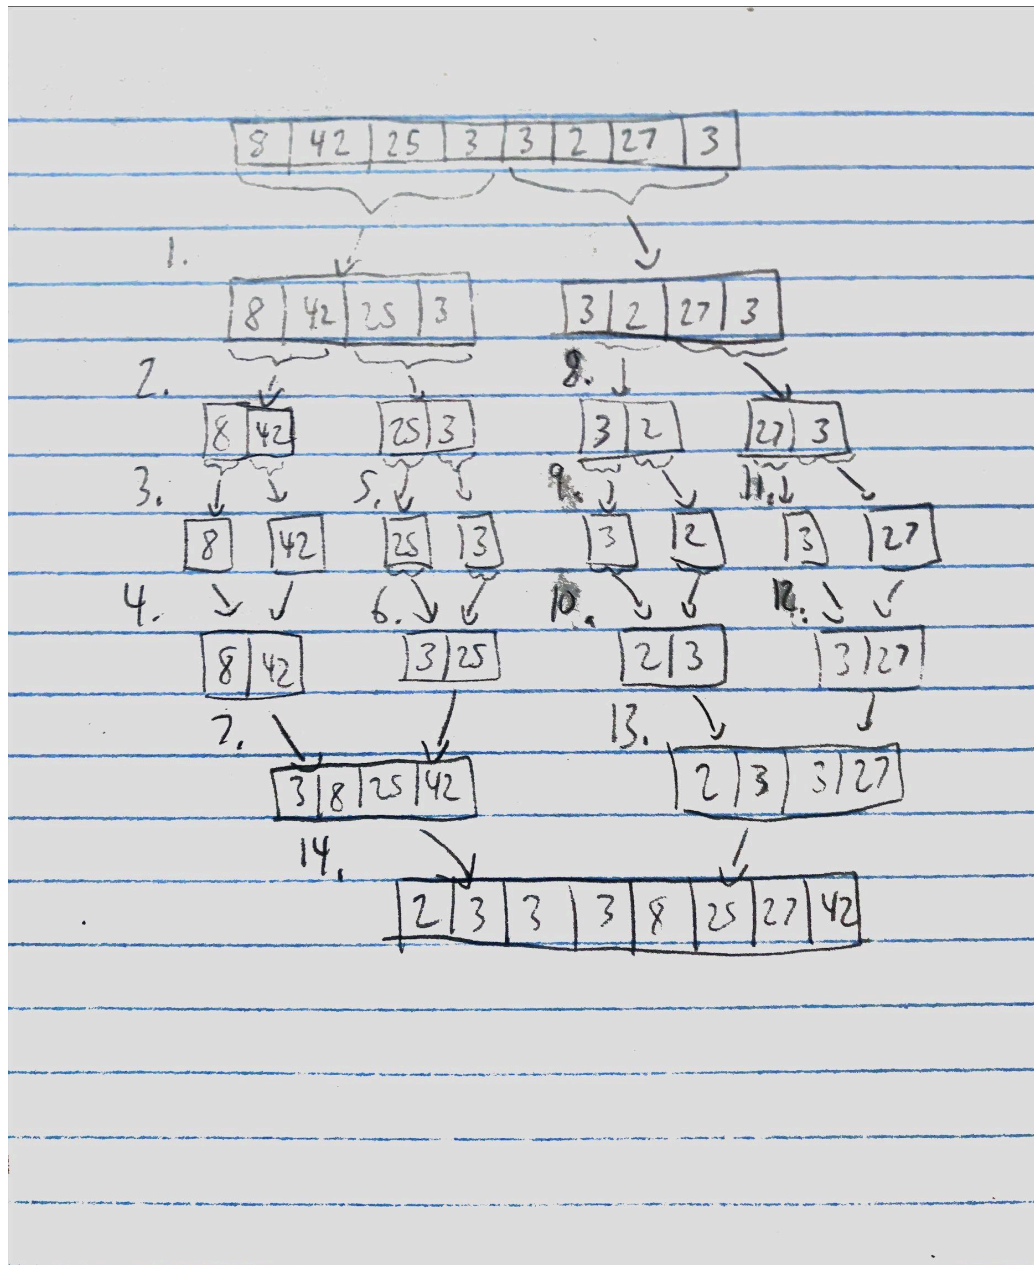 8 42 25 3 3 2 27 3
1.
8 42 25 3 3 2 27 3
2. 8.
8 42 25 3 3 2 27 3
3. 5. 9. 11.
8 42 25 3 3 2 3 27
4. 6. 10. 12.
8 42 3 25 2 3 3 27
7. 13.
3 8 25 42 2 3 3 27
14.
2 3 3 3 8 25 27 42